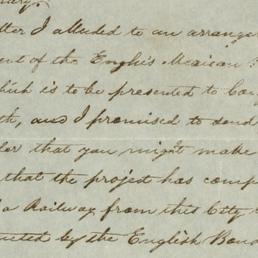 tter I alluded to an arrange
ent of the Englis Mexican
hich is to be presented to Con
th, and I promised to send
der that you might make
that the projet has comp
a Railway from this City
ucted by the English Bond